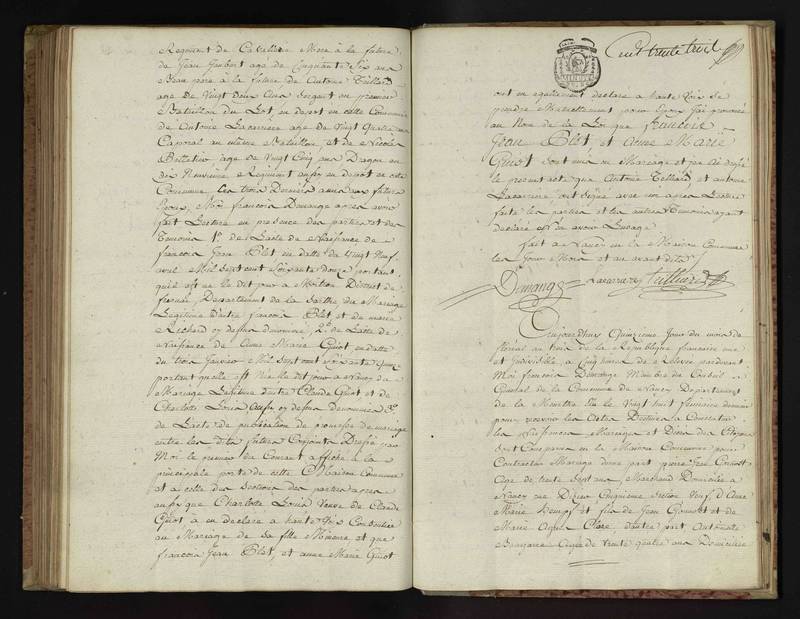 Régiment de Cavallerie More à la future
de Jean Joubert age de Cinquante Six ans
Beau pere à la future de Antoine Teilliard
age de Vingt deux ans Sergent au premier
Bataillon du Lot, en depot en cette Commune
de Antoine Lacarriere age de Vingt quatre ans
Caporal au même Bataillon, et de Nicolas
age de Vingt Cinq ans Dragon au
dix Neuvieme Regiment aussy en depot en cette
Commune les trois Derniers amis du future
Epoux, Moi françois Demange apres avoir
fait Lecture en presence des parties et des
Temoins 1°. de Lacte de Naissance de
françois Jean Blet en datte du Vingt Neuf
avril Mil Sept cent Soixante douze portant
quil est né le dit jour à District de
Département de la Sarthe du Mariage
Legitime d'autre françois Blet et de marie
Richard cy dessus denommée, 2° de Lacte de
Naissance de anne Marie Guiot en datte
du trois Janvier Mil Sept cent Soixante
portant quelle est Née le dit jour à Nancy du
Mariage Legitime d'entre Claude Guiot et de
Charlotte Louis cy dessus Denommés 3°.
de Lacte de publication de promesse de mariage
entre les dits futurs Conjoints Dressé par
Moi le premier du Courant affiché à la
principale porte de cette Maison Commune
et a celle des Sections des parties apres
aussy que Charlotte Louis Veuve de Claude
Guiot à eu declaré a haute Voix Consentir
au Mariage de sa fille Mineure et que
françois Jean Blet, et anne Marie Guiot
Cent trente trois
ont eu également declaré a haute Voix Se
prendre Mutuellement pour Epoux J'ai prononcé
au Nom de la Loi que françois
Jean Blet, et anne Marie
Guiot Sont unis en Mariage et j'en ai redigé
le present acte que Antoine Teilliard, et antoine
Lacarriere, ont Signé avec moi apres Lecture
faite les parties et les autres Temoins ayant
declaré n'En avoir Lusage
fait a Nancy en la Maison Commune
les Jour Mois et an avant dits
Demange Lacarriere Teilliard
Aujourdhuy Quinzieme Jour du mois de
floréal an trois de la Republique francaise une
et Indivisible, a Cinq heures de Relevée pardevant
Moi françois Demange Membre du Conseil
General de la Commune de Nancy Departement
de la Meurthe Elu le Vingt huit frimaire dernier
pour recevoir les Actes Destinés a Constater
les Naissances Mariages et Décès des Citoyens
Sont Comparus en la Maison Commune pour
Contracter Mariage dune part pierre Jean Gouvost
Agé de trente Sept ans Marchand Domicilié a
Nancy rue Cinquieme Section Veuf d'Anne
Marie et fils de Jean Gouvost et de
Marie Agnès Claire dautre part Antoinette
Agée de trente quatre ans Domiciliée